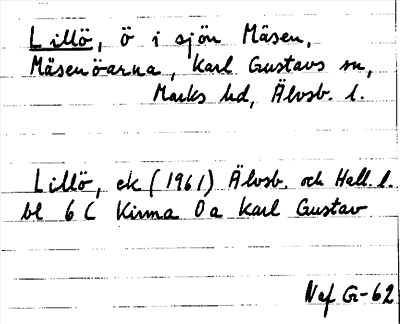 Lillö, ö i sjön Mäsen,
Mäsenöarna, Karl Gustavs sn,
Marks hd, Älvsb. l.
Lillö, ek (1961) Älvsb. och Hall. l.
bl 6 C Kinna 0a Karl Gustav
Naf G-62